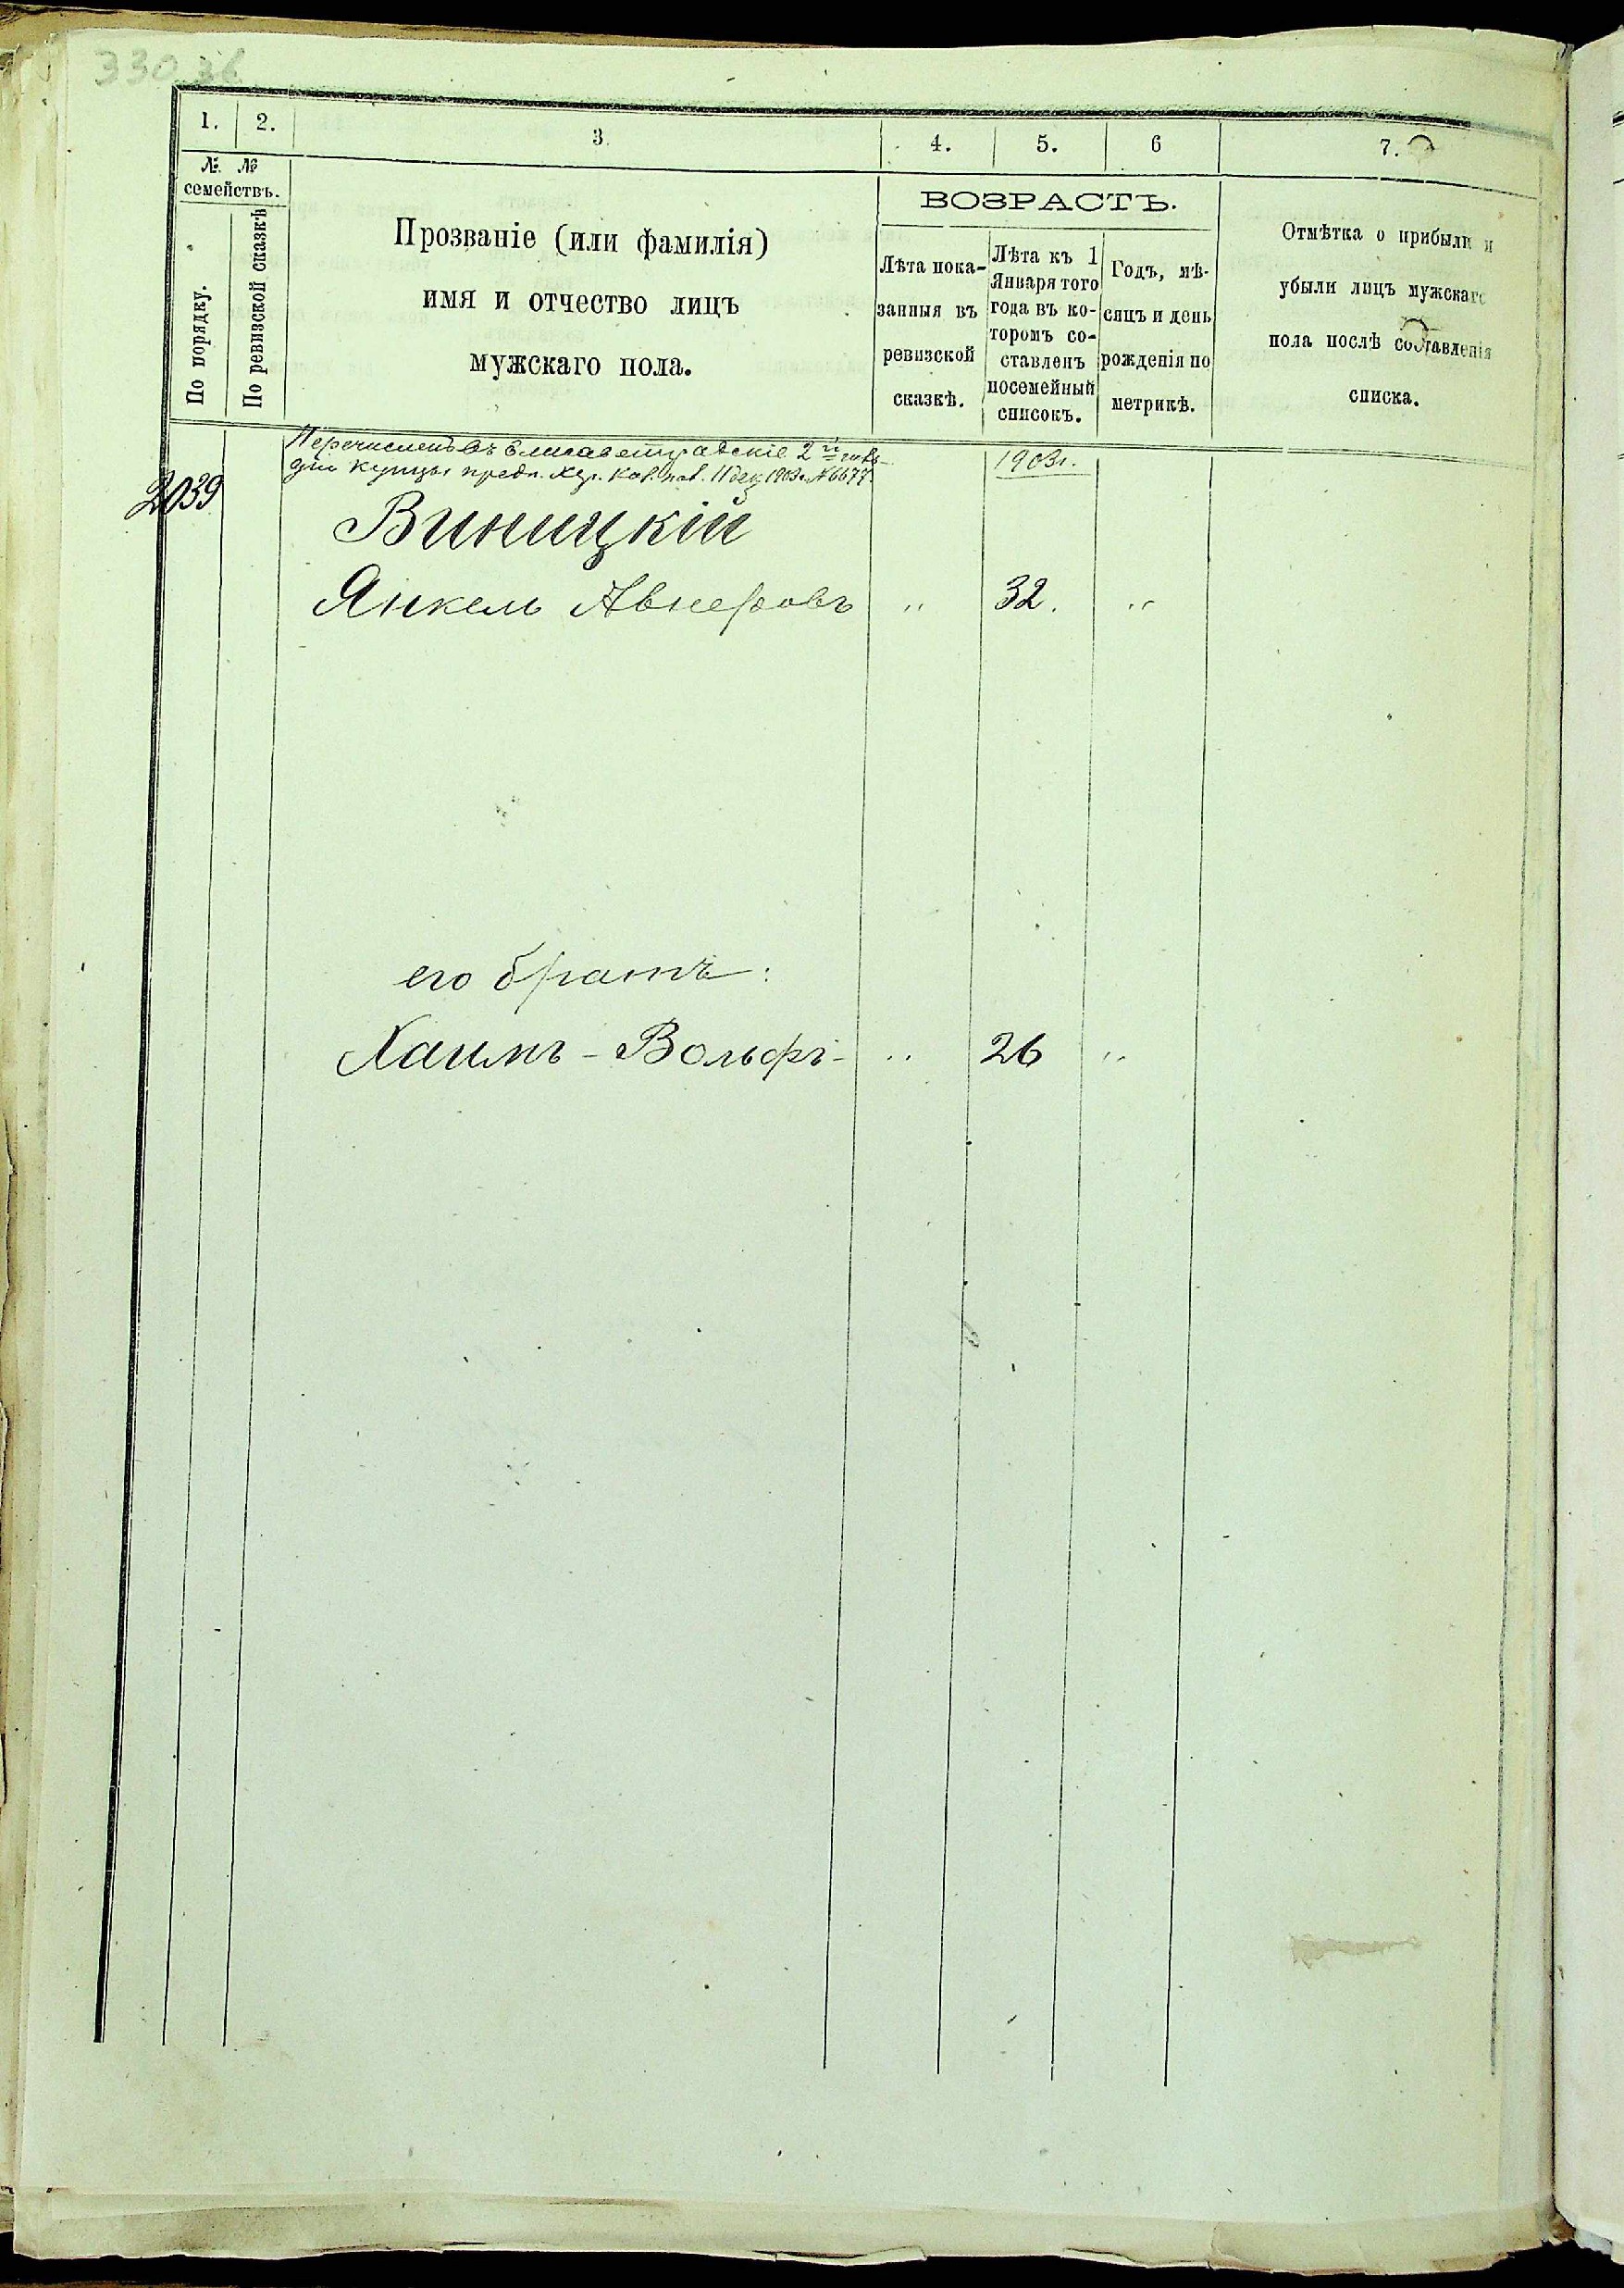 330 зв
1. 2. 3. 4. 5. 6 7.
№ №
семействъ.
По порядку.
По ревизской сказкѣ
Прозваніе (или фамилія)
имя и отчество лицъ
мужскаго пола.
ВОЗРАСТЪ.
Лѣта пока-
занныя въ
ревизской
сказкѣ.
Лѣта къ 1
Января того
года въ ко-
торомъ со-
ставленъ
посемейный
списокъ.
Годъ, мѣ-
сяцъ и день
рожденія по
метрикѣ.
Отмѣтка о прибыли и
убыли лицъ мужскаго
пола послѣ составленія
списка.
Перечисленъ въ Елисаветградскіе 2й гиль-
діи купцы предп. Хер. Каз. пал. 11 дек 1903 г. №6677.
1903г.
2039
Виницкій
Янкель Авнеровъ " 32. "
его братъ:
Хаимъ-Вольфъ- " 26 "